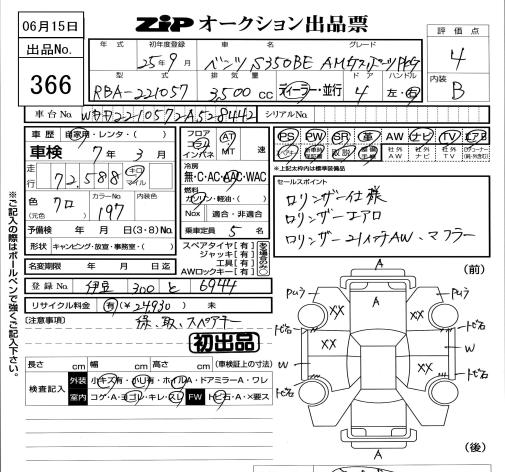 06月15日
ZiP オークション出品票
出品No.
366
年式 初年度登録 車名 グレード
25年9月 ベンツ S350BE AMGスポーツPKG
評価点
4
型式 排気量 ドア ハンドル
RBA-221057 3,500cc ディーラー・並行 4 左・右
内装
B
車台No. シリアルNo.
車歴 自家用・レンタ・( )
車検 7年3月
走行 72,588 キロ マイル
色 クロ (元色) カラーNo. 197 内装色
予備検 年 月 日(3・8)No.
形状 キャンピング・放宣・事務室・( )
名変期限 年 月 日迄
フロア コラム インパネ AT MT 速
冷房
無・C・AC・AAC・WAC
燃料
ガソリン・軽油・( )
Nox 適合・非適合
乗車定員 5名
スペアタイヤ【有】
ジャッキ【有】
工具【有】
AWロックキー【有】
ある場合のみ〇
PS PW SR 革 AW ナビ TV エアB
取説 社外AW 社外ナビ 社外TV
*上記太枠内は標準装備品
セールスポイント
ロリンザー仕様
ロリンザーエアロ
ロリンザー21インチAW、マフラー
登録No. 伊豆 300 と 6944
リサイクル料金 有(¥24,930) 未
(注意事項) 保、取、スペアキー
初出品
長さ cm 幅 cm 高さ cm (車検証上の寸法)
検査記入 外装 小キズ有・小凹有・ホイルA・ドアミラーA・ワレ
室内 コゲ・A・ヨゴレ・キレ・スレ FW トビ石・A・×要ス
※ご記入の際はボールペンで強くご記入下さい。
(前)
A
XX A XX
トビ石 トビ石
W XX W
トビ石 トビ石
A
(後)